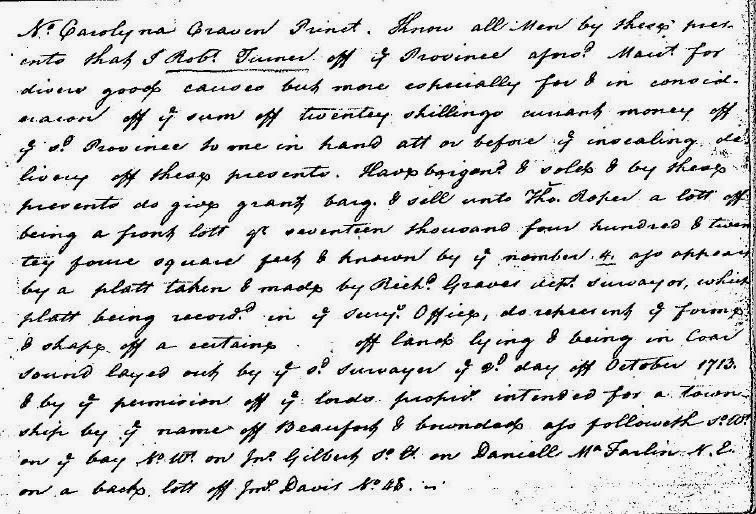 No. Carolyna Craven Princt. Know all Men by these pres-
ents that I Robt. Turner off ye Province aforsd. Mairt. for
divers good causes but more especially for & in consid-
eracon off ye sum off twentey shillings currant money off
ye sd. Province to me in hand att or before ye insealing de
livery off these presents. Have bargend. & sold & by these
presents do give grant barg. & sell unto Tho. Roper a lott off
being a front lott qt. seventeen thousand four hundred & twen
tey foure square feet & known by ye nomber 4. ass appears
by a platt taken & made by Richd. Graves dept. survayor, which
platt being recordd. in ye Survrs. Office, do represent ye forme
& shape off a certaine off land lying & being in Coar
sound layed out by ye sd. survayer ye 2d. day off October 1713.
& by ye permision off ye lords propirs. intended for a town
ship by ye name off Beaufort & bownded ass followeth So. Wt.
on ye bay No. Wt. on Jno. Gilbert So. Et. on Daniell Ma Farlin N. E.
on a back lott off Jno. Davis No. 48.